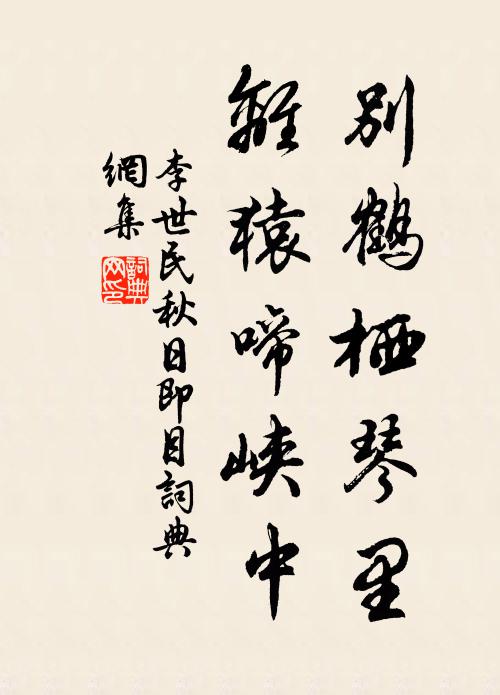 别鶴栖琴里
離猿啼峡中
李世民秋日即目詞典
網集
詞典
网印